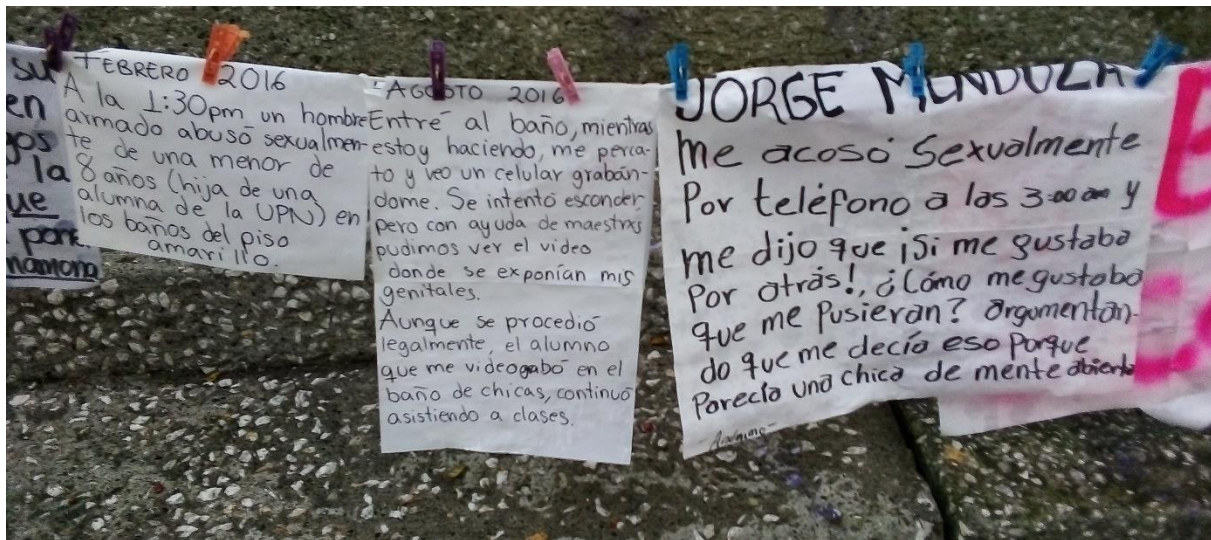 su
en
gos
la
que
pone
mamona
FEBRERO 2016
A la 1:30pm un hombre
armado abusó sexualmen-
te de una menor de
8 años (hija de una
alumna de la UPN) en
los baños del piso
amarillo.
AGOSTO 2016
Entré al baño, mientras
estoy haciendo, me perca-
to y veo un celular grabán-
dome. Se intentó esconder
pero con ayuda de maestras
pudimos ver el video
donde se exponían mis
genitales.
Aunque se procedió
legalmente, el alumno
que me videogabó en el
baño de chicas, continuó
asistiendo a clases.
JORGE MENDOZA
me acosó Sexualmente
Por teléfono a las 3:00 am y
me dijo que ¡Si me gustaba
Por atrás!, ¿Cómo me gustaba
que me pusieran? argumentan-
do que me decía eso porque
Parecía una chica de mente abierta
Anónimo